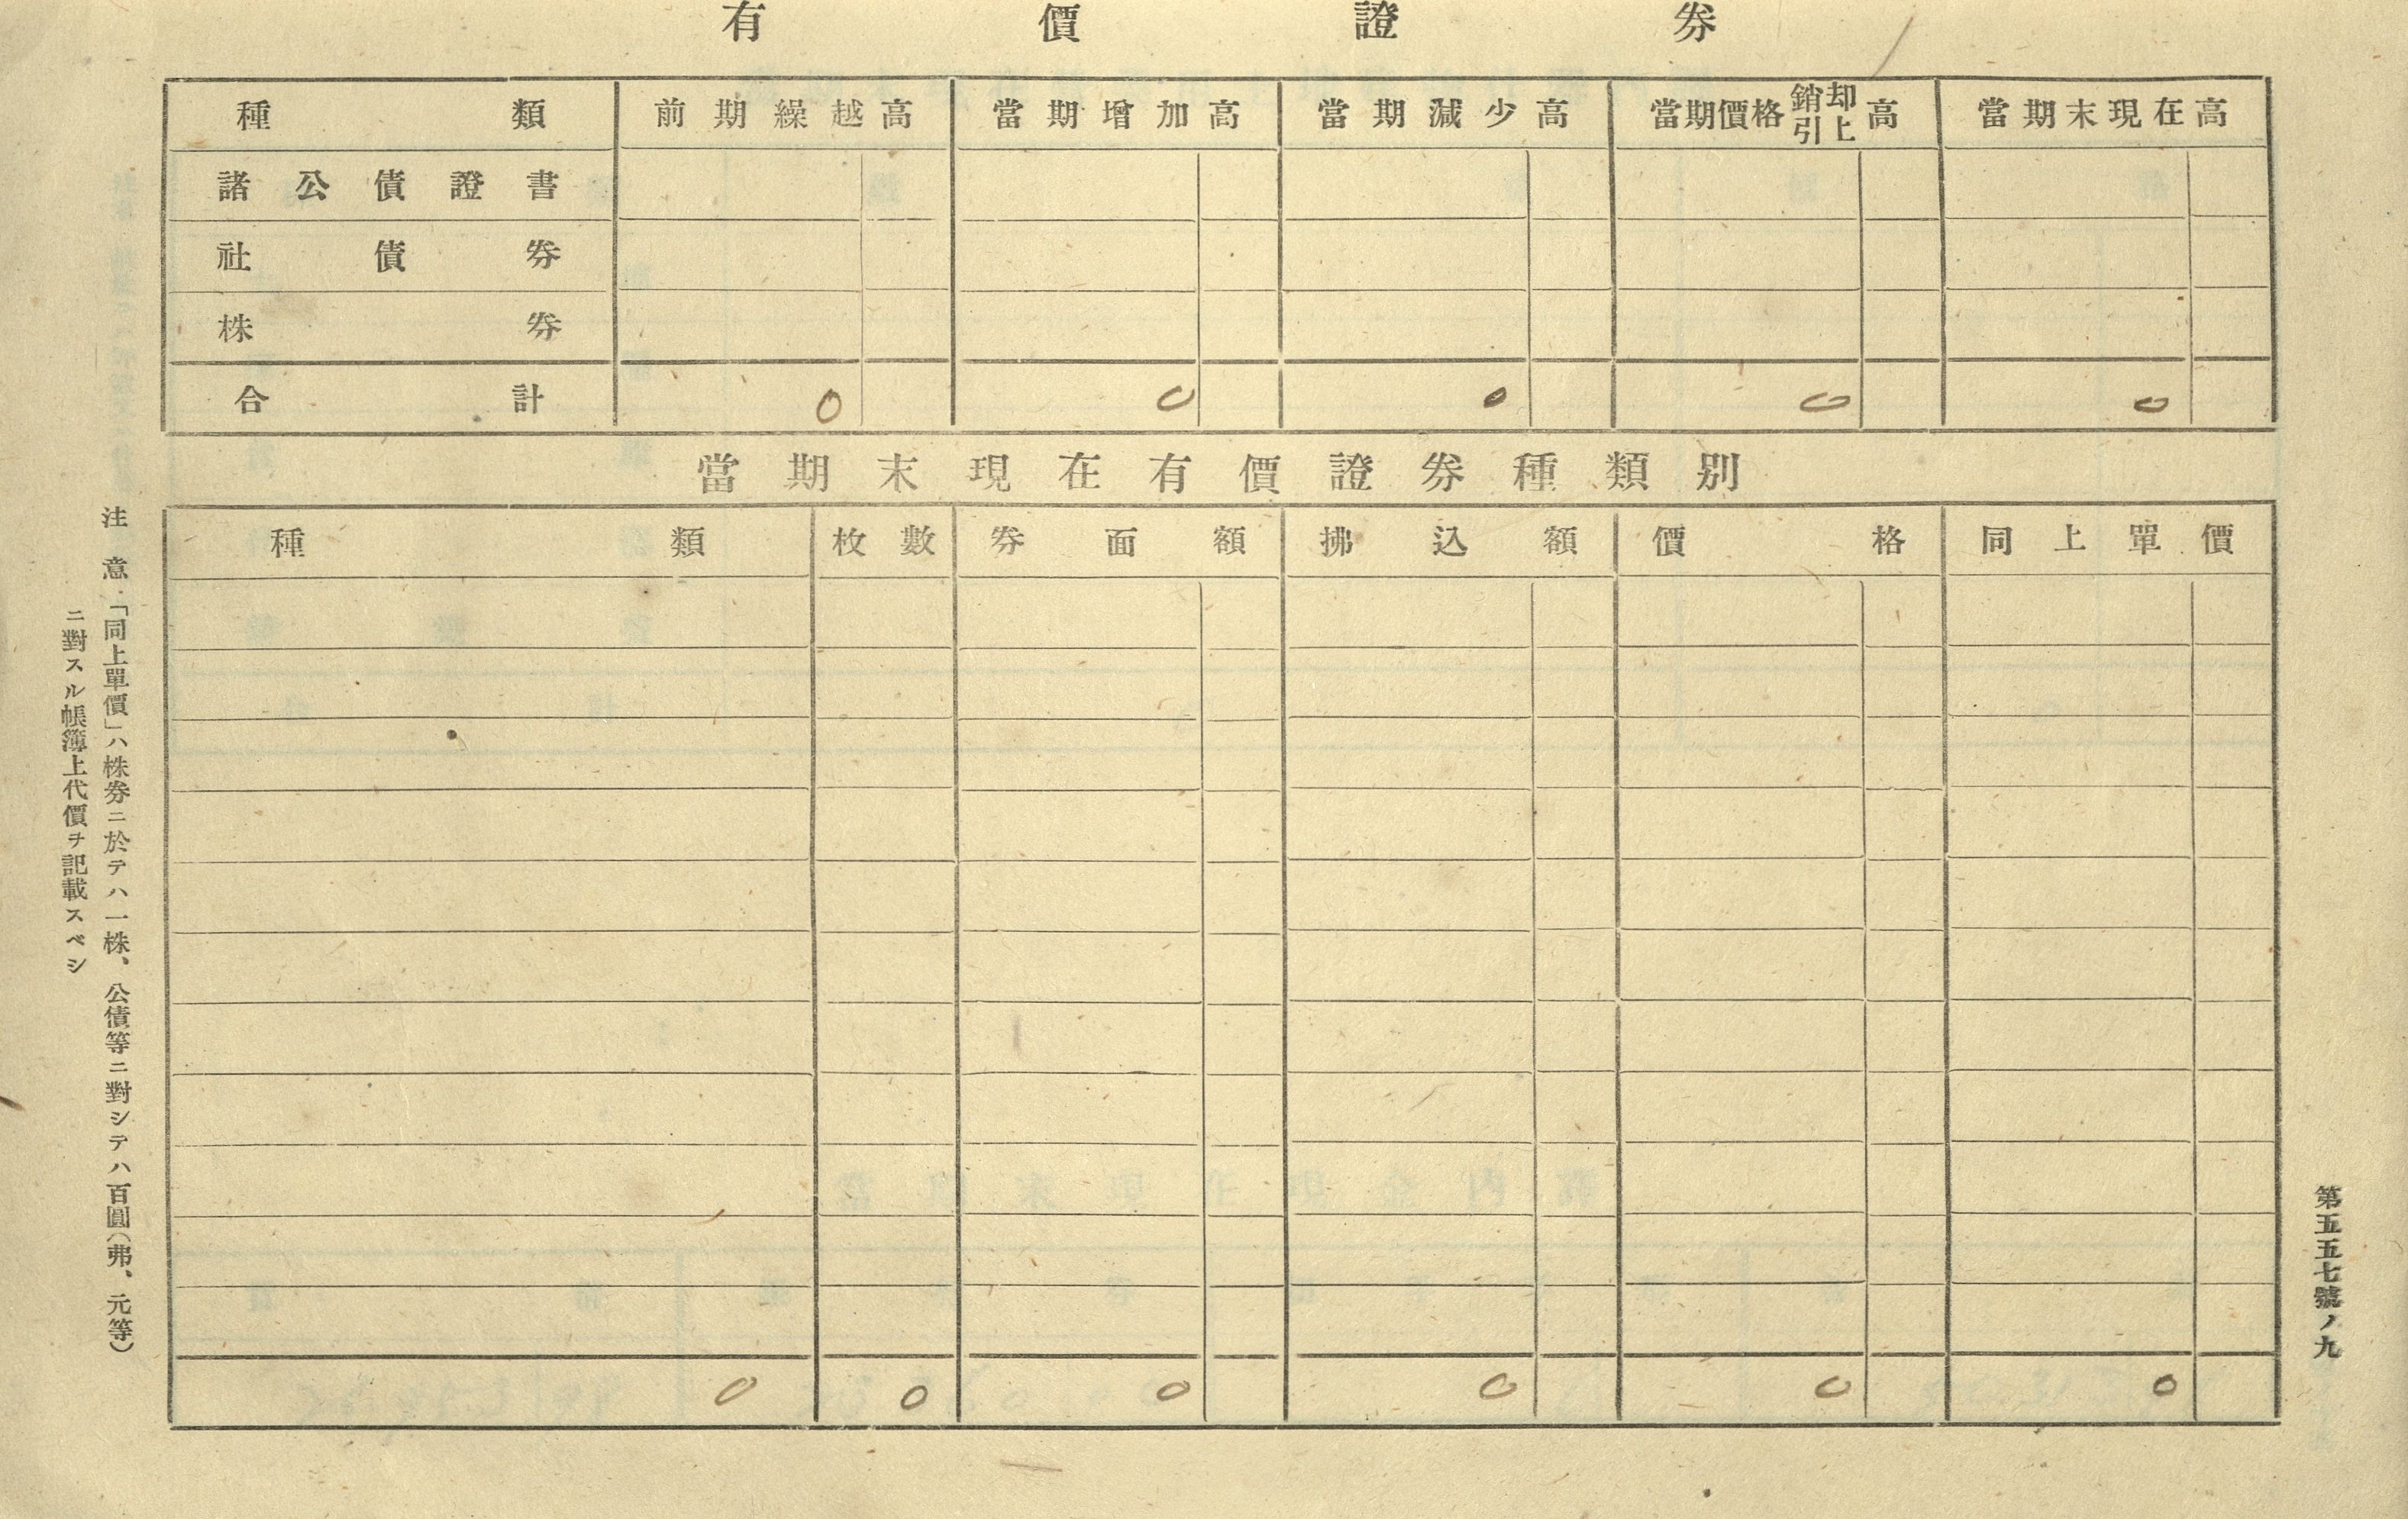 有價證券
種類 前期繰越高 當期增加高 當期減少高 當期價格銷却引上高 當期末現在高
諸公債證書
社債券
株券
合計 0 0 0 0 0
當期末現在有價證券種類別
種類 枚數 券面額 拂込額 價格 同上單價
0 0 0 0 0 0
注意「同上單價」ハ株券ニ於テハ一株、公債等ニ對シテハ百圓(弗、元等)
ニ對スル帳簿上代價ヲ記載スベシ
第五五七號ノ九